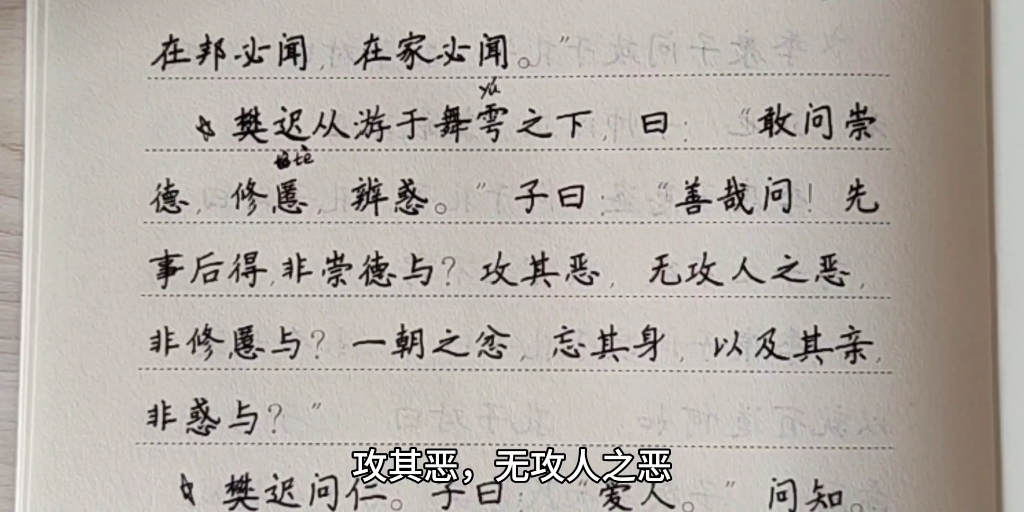 在邦必闻，在家必闻。”
yú
☆樊迟从游于舞雩之下，曰：“敢问崇
tè
德，修慝，辨惑。”子曰：“善哉问！先
事后得，非崇德与？攻其恶，无攻人之恶，
非修慝与？一朝之忿，忘其身，以及其亲，
非惑与？”
☆樊迟问仁。子曰：“爱人。”问知。
攻其恶，无攻人之恶